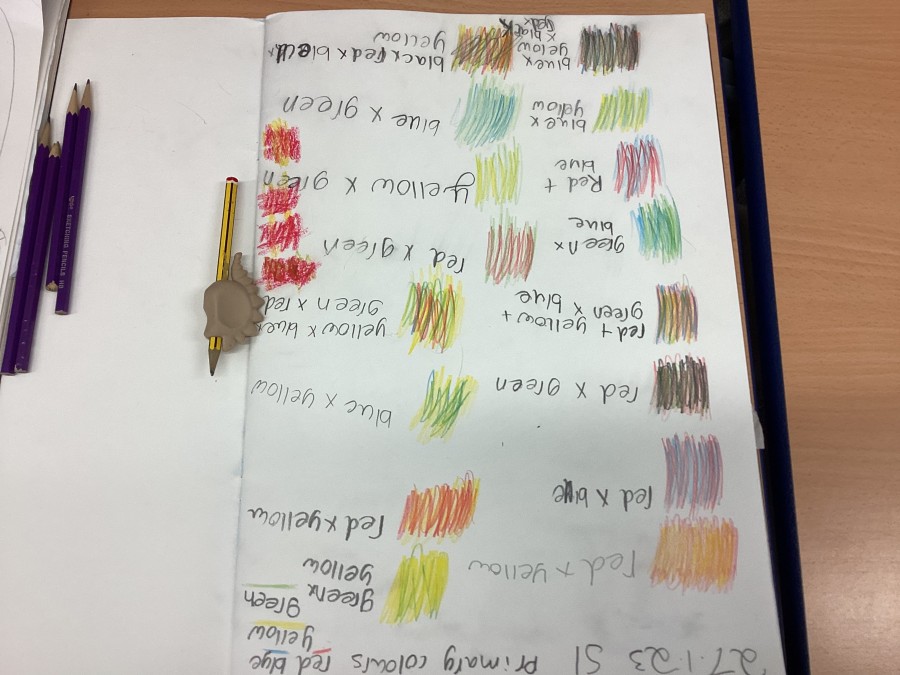 27.1.23 S1 Primary colours red blue
yellow
green
red + yellow
red x blue
red x green
red + yellow +
green x blue
green x
blue
Red +
blue
blue x
yellow
blue x
yellow
x black
red x
green x
yellow
red x yellow
blue x yellow
yellow x blue x
green x red
red x green
yellow x green
blue x green
black x red x blue x
yellow
SKETCHING PENCILS HB